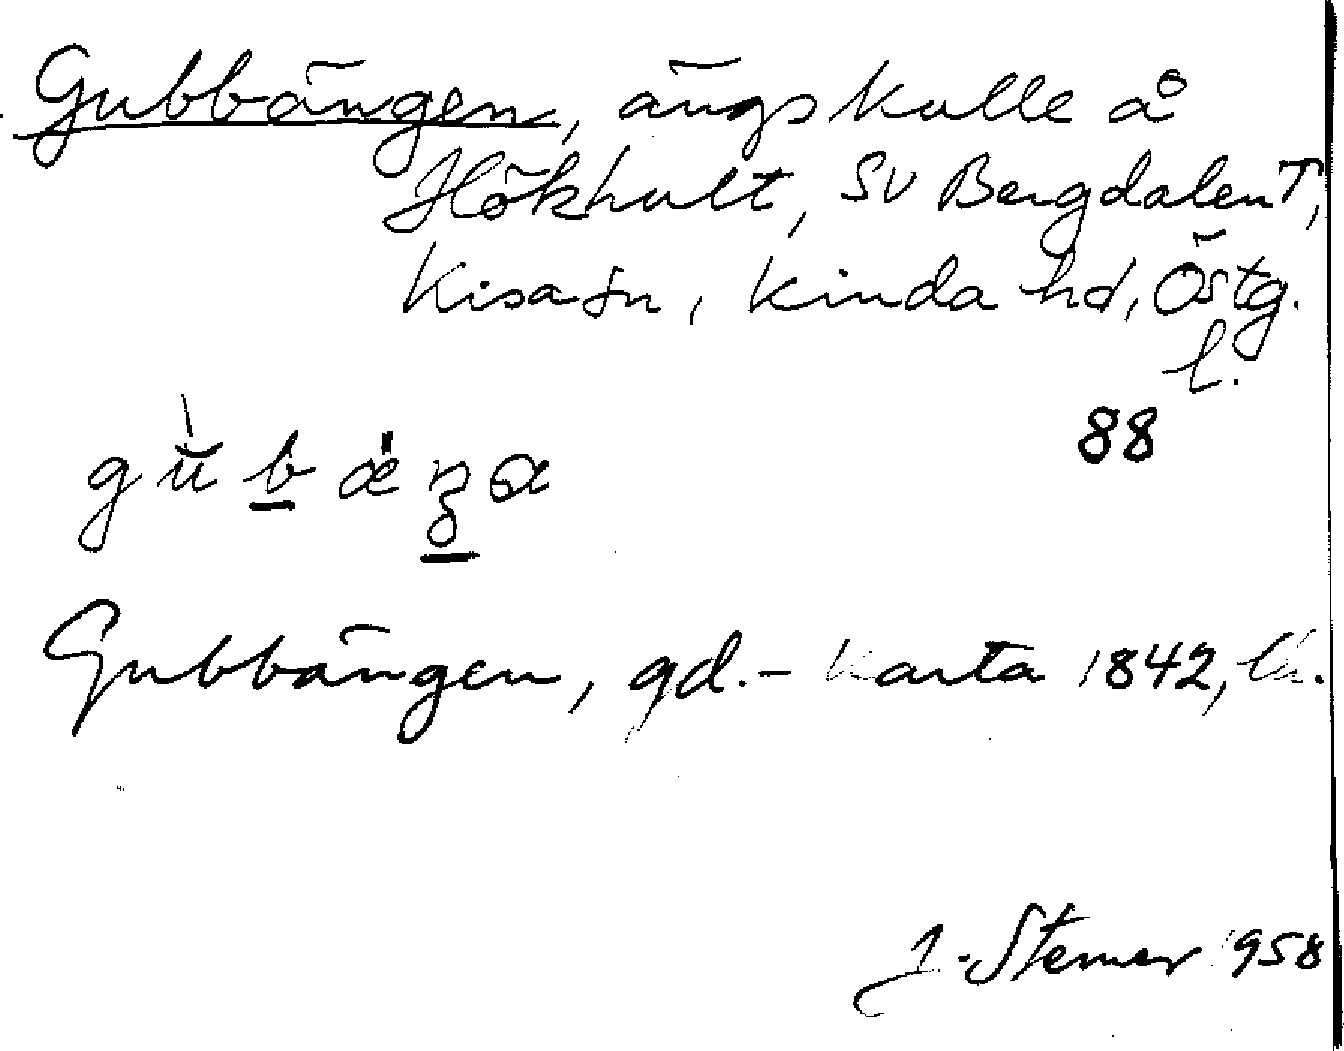 Gubbängen, ängskulle å
Hökhult, SV Bergdalen T,
Kisa sn, Kinda hd, Östg.
l.
88
Gubbängen, gd. - Karta 1842,
J. Sterner 1958